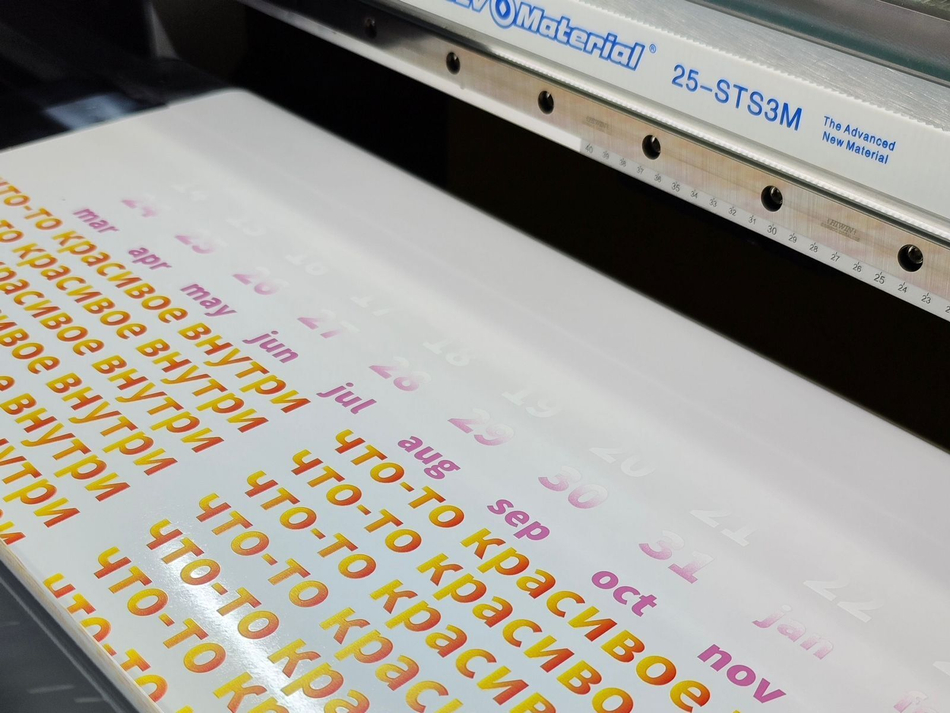 Material®
25-STS3M
The Advanced
New Material
40 39 38 37 36 35 34 33 32 31 30 29 28 27 26 25 24 23
15 16 17 18 19 20 21 22
24 25 26 27 28 29 30 31 jan
mar apr may jun jul aug sep oct nov
что-то красивое внутри
то красивое внутри
красивое внутри
сивое внутри
вое внутри
е внутри
внутри
утри
что-то красивое
что-то красивое
что-то красивое
что-то красив
что-то краси
что-то крас
что-то кр
что-то
что-то